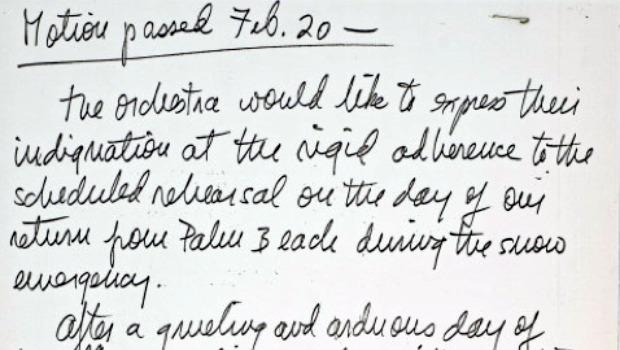 Motion passed Feb. 20 —
The orchestra would like to express their
indignation at the rigid adherence to the
scheduled rehearsal on the day of our
return from Palm Beach during the snow
emergency.
After a grueling and arduous day of